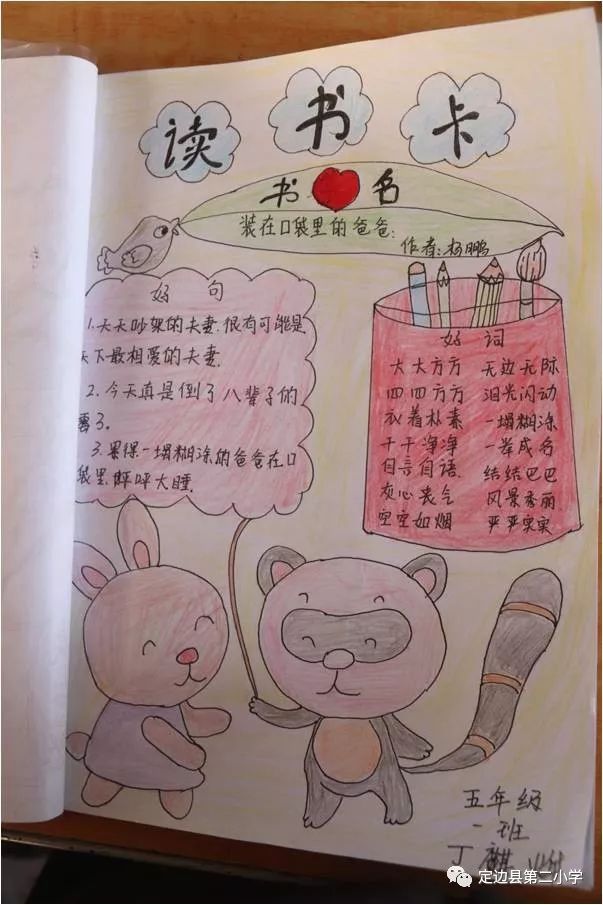 读书卡
书名
装在口袋里的爸爸:
作者:杨鹏
好句
1.天天吵架的夫妻.很有可能是
天下最相爱的夫妻.
2.今天真是倒了八辈子的
霉了。
3.累得一塌糊涂的爸爸在口
袋里呼呼大睡.
好词
大大方方 无边无际
四四方方 泪光闪动
衣着朴素 一塌糊涂
干干净净 一举成名
自言自语. 结结巴巴
灰心丧气 风景秀丽
空空如烟 严严实实
五年级
一班
丁麒
定边县第二小学